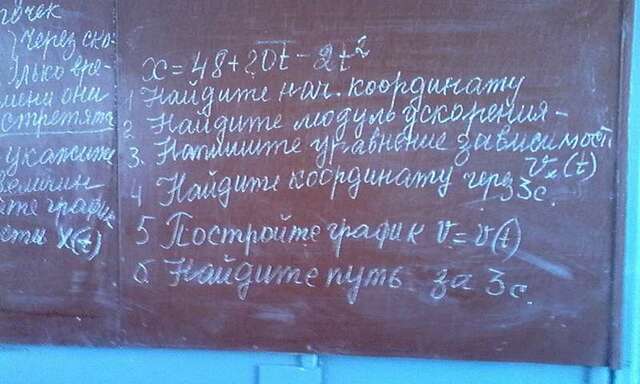 чек
) Через ско-
)лько вре-
мени они
стретят
укажите
величин
те график
еты x(t)
x = 48 + 20t - 2t²
1 Найдите нач. координату
2 Найдите модуль ускорения-
3. Напишите уравнение зависимости
vₓ(t)
4 Найдите координату через 3с.
5 Постройте график v = v(t)
6 Найдите путь за 3с.